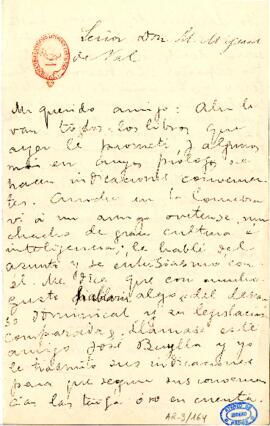 Señor Don M. M.
de Val
Mi querido amigo: Ahí le
van todos los libros que
ayer le prometí, y algunos
más en cuyos prólogos se
hacen indicaciones convenien-
tes. Anoche en la Comedia
vi á mi amigo ovetense, mu-
chacho de gran cultura é
inteligencia; le hablé del
asunto y se entusiasmó con
él. Me dice que con mucho
gusto hablaría algo del descan-
so dominical y su legislación
comparada; llámase este
amigo José Buylla y yo
le trasmito sus indicaciones
para que según sus convenien-
cias las tenga ó no en cuenta.
AR-3/164